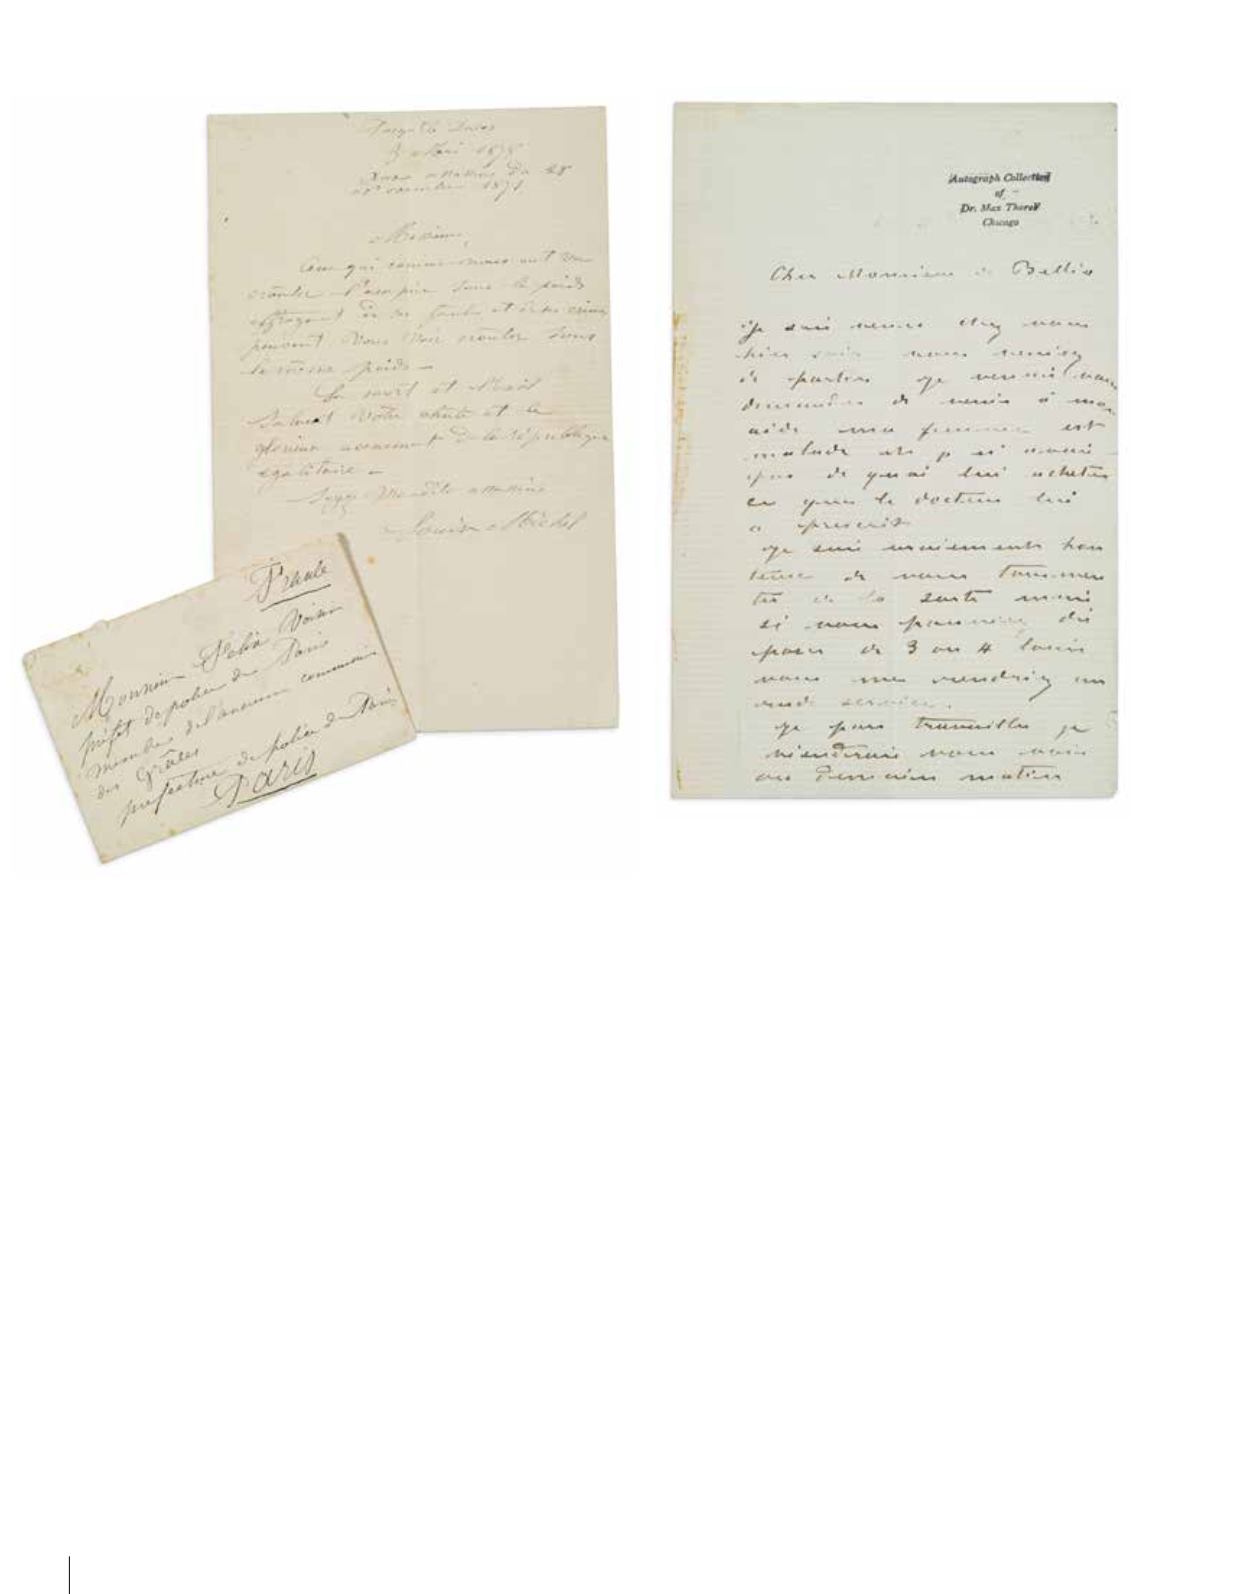 3 Mai 1875
Aux assassins du 28
novembre 1871
Messieurs,
Ceux qui comme nous ont vu
crouler l'empire sous le poids
effrayant de ses fautes et de ses crimes
peuvent vous voir crouler sous
le même poids —
La mort et
saluent votre chute et le
glorieux avènement de la république
égalitaire —
Soyez Maudits assassins
Louise Michel
France
Monsieur Félix Voisin
préfet de police de Paris
membre de l'ancienne commission
des Grâces
prefecture de police de Paris
Paris
Autograph Collection
of
Dr. Max Thorek
Chicago
Cher Monsieur de Bellio
Je suis venu chez vous
hier soir vous veniez
de partir je venais vous
demander de venir à mon
aide ma femme est
malade et je n'ai
pas de quoi lui acheter
ce que le docteur lui
a prescrit
Je suis vraiement hon
teux de vous tourmen
ter de la sorte mais
si vous pouviez dis
poser de 3 ou 4 louis
vous me rendriez un
rude service.
Je pars travailler je
viendrais vous voir
demain matin